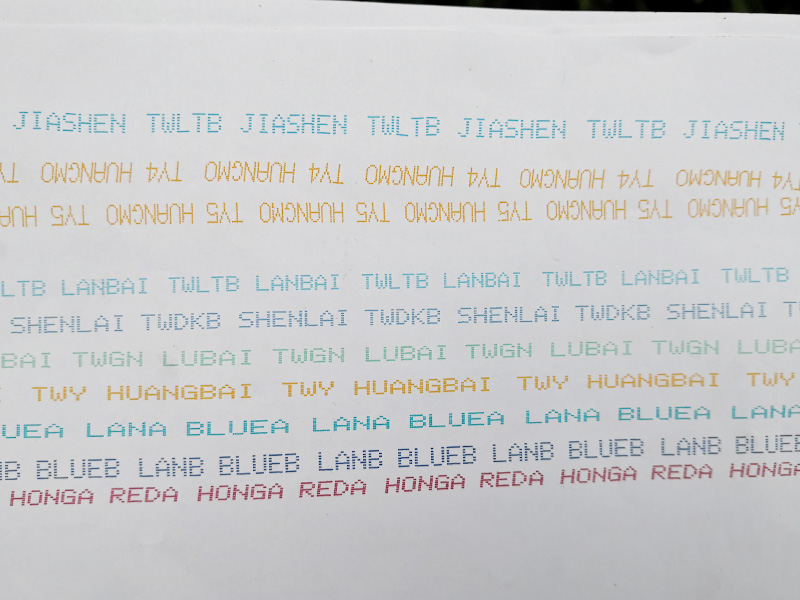 JIASHEN TWLTB JIASHEN TWLTB JIASHEN TWLTB JIASHEN
HUANGMO TY4 HUANGMO TY4 HUANGMO TY4 HUANGMO TY4 HUANGMO TY
HUANGMO TY5 HUANGMO TY5 HUANGMO TY5 HUANGMO TY5 HUANGMO TY5 HUA
LTB LANBAI TWLTB LANBAI TWLTB LANBAI TWLTB LANBAI TWLTB
SHENLAI TWDKB SHENLAI TWDKB SHENLAI TWDKB SHENLAI T
BAI TWGN LUBAI TWGN LUBAI TWGN LUBAI TWGN LUBA
TWY HUANGBAI TWY HUANGBAI TWY HUANGBAI TWY
UEA LANA BLUEA LANA BLUEA LANA BLUEA LANA
NB BLUEB LANB BLUEB LANB BLUEB LANB BLUEB LANB BLUEB
HONGA REDA HONGA REDA HONGA REDA HONGA REDA HONGA